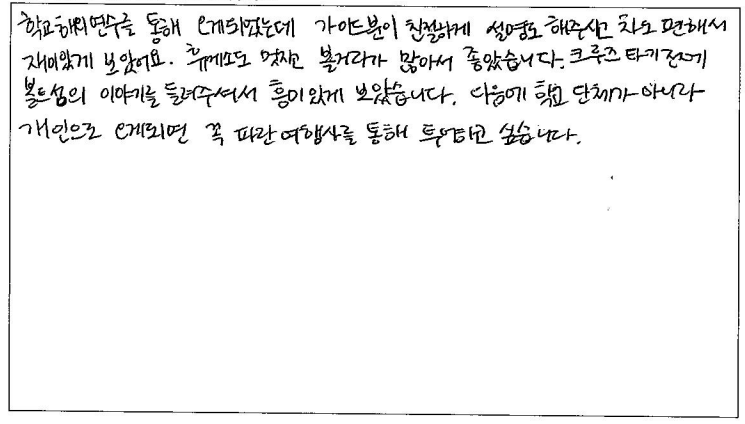 학교해외연수를 통해 오게되었는데 가이드분이 친절하게 설명도 해주시고 차도 편해서
재미있게 보았어요. 휴게소도 멋지고 볼거리가 많아서 좋았습니다. 크루즈 타기전에
볼트섬의 이야기를 들려주셔서 흥미있게 보았습니다. 다음에 학교 단체가 아니라
개인으로 오게되면 꼭 파란여행사를 통해 투어하고 싶습니다.